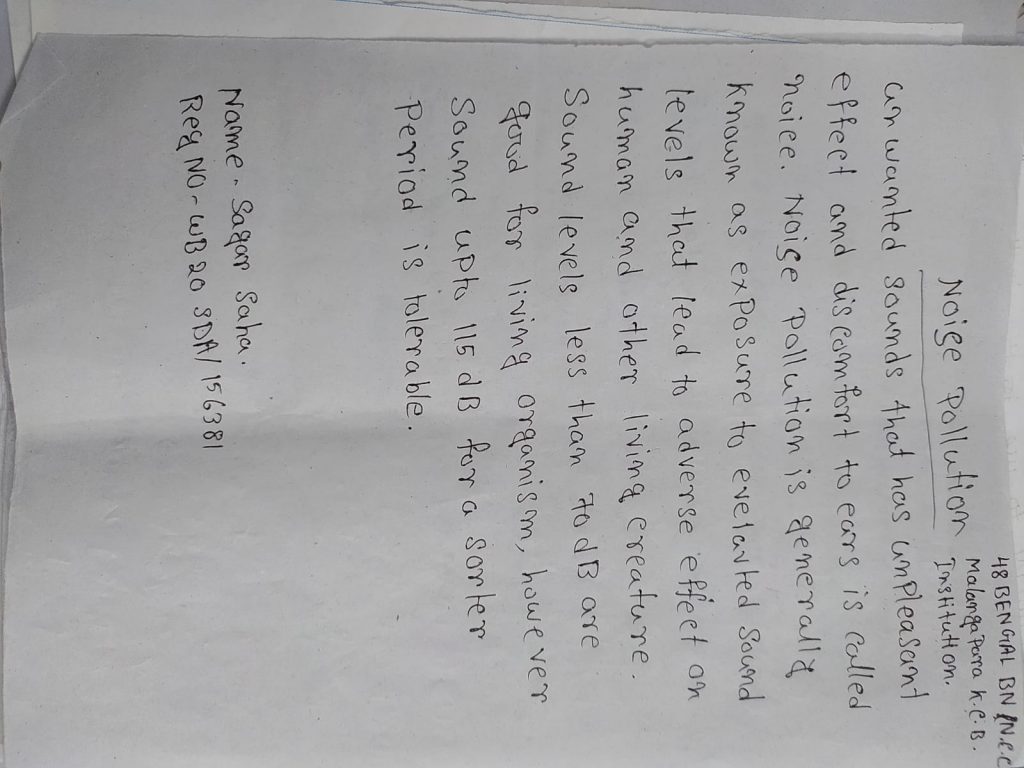 48 BENGAL BN/N.C.C
Malangapara K.C.B.
Institution.
Noise Pollution
unwanted sounds that has unpleasant
effect and discomfort to ears is called
noice. Noise pollution is generally
known as exposure to evelavted sound
levels that lead to adverse effect on
human and other living creature.
Sound levels less than 70 dB are
good for living organism, however
Sound upto 115 dB for a sorter
Period is tolerable.
Name - Sagar Saha.
Reg No - WB 20 SDA/156381